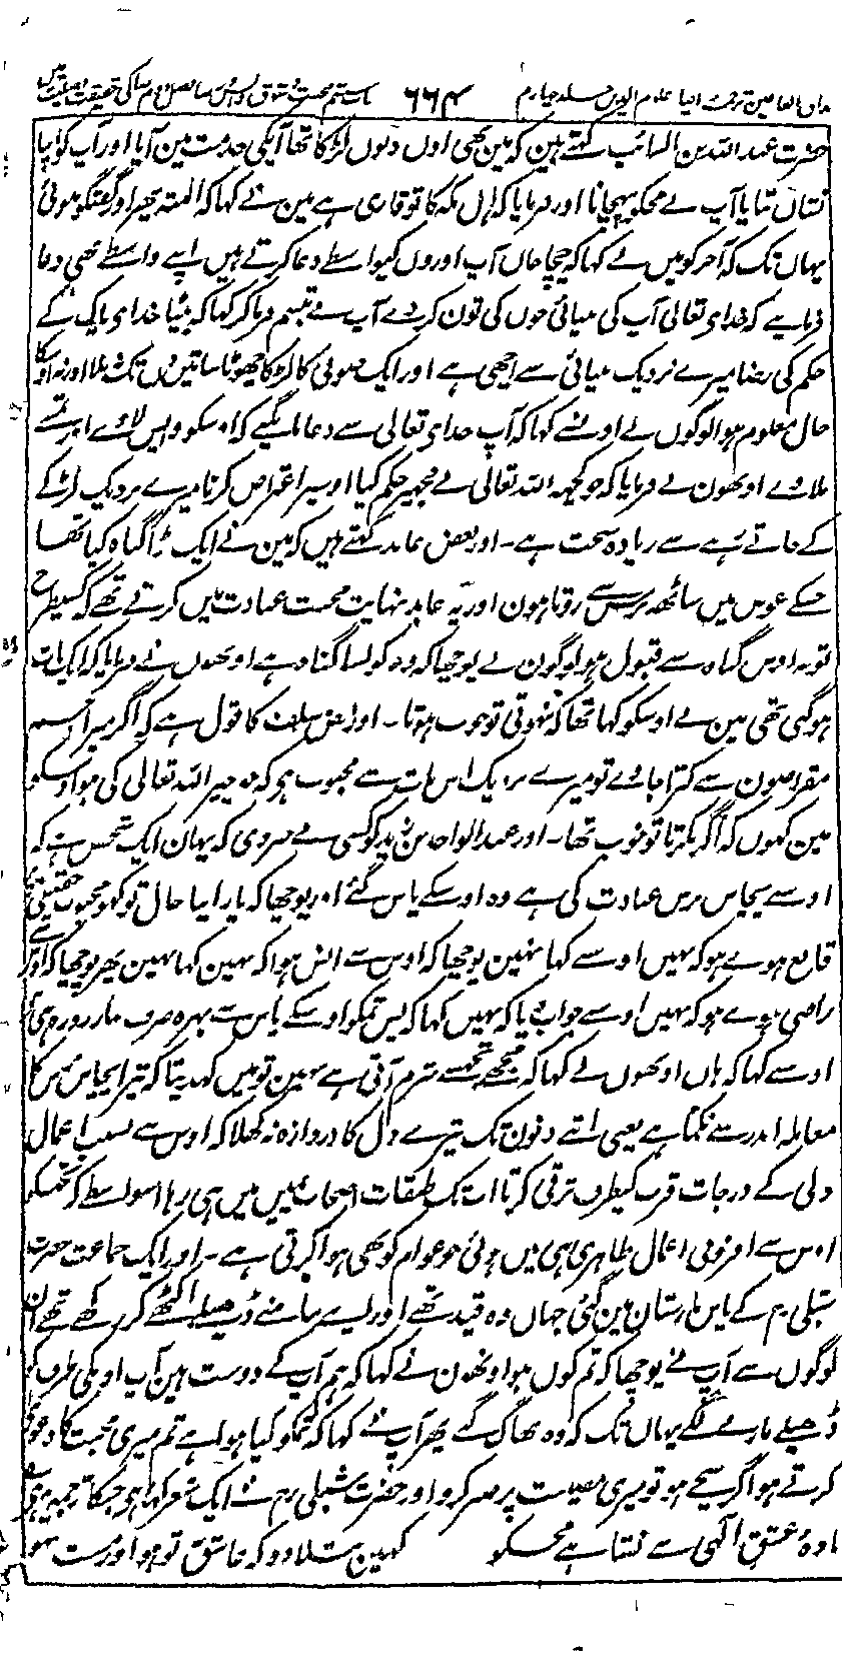 مذاق العارفین ترجمہ احیاء علوم الدین جلد چہارم ۶۶۴ باب ششم محبت و شوق و انس و رضا فصل دوم رضا کی حقیقت و فضیلت میں
حضرت عبد اللہ بن السائب کہتے ہین کہ مین بھی اون دنوں لڑکا تھا آپکی خدمت مین آیا اور آپ کو اپنا
نشان بتایا آپ نے مجکو پہچانا اور فرمایا کہ اہل مکہ کا تو قاری ہے مین نے کہا کہ البتہ پھر اور گفتگو ہوئی
یہاں تک کہ آخر کو میں نے کہا کہ چچا جان آپ اوروں کیواسطے دعا کرتے ہیں اپنے واسطے بھی دعا
فرمایے کہ خدای تعالی آپ کی بینائی جوں کی توں کر دے آپ نے تبسم فرما کر کہا کہ بیٹا خدای پاک کے
حکم کی رضا میرے نزدیک بینائی سے اچھی ہے اور ایک صوفی کا لڑکا چھوٹا سا تین دن تک نہ ملا اور نہ اوسکا
حال معلوم ہوا لوگوں نے اونسے کہا کہ آپ خدای تعالی سے دعا مانگیے کہ اوسکو واپس لاوے اور تمسے
ملاوے اونھون نے فرمایا کہ جو کچھہ اللہ تعالی نے مجھپر حکم کیا اوسپر اعتراض کرنا میرے نزدیک لڑکے
کے جاتے رہنے سے زیادہ سخت ہے۔ اور بعض عابد کہتے ہیں کہ مین نے ایک بڑا گناہ کیا تھا
جسکے عوض میں ساٹھہ برس سے روتا ہون اور یہ عابد نہایت محنت عبادت میں کرتے تھے کہ کسیطرح
توبہ اوس گناہ سے قبول ہو لوگون نے پوچھا کہ وہ کونسا گناہ ہے اونھوں نے فرمایا کہ ایک بات
ہو گئی تھی مین نے اوسکو کہا تھا کہ نہوتی تو خوب ہوتا۔ اور بعض سلف کا قول ہے کہ اگر میرا جسم
مقراضون سے کترا جاوے تو میرے نزدیک اس بات سے محبوب ہو کہ جو چیز اللہ تعالی کی ہو اوسکو
مین کہوں کہ اگر نکرتا تو خوب تھا۔ اور عبد الواحد بن زید کو کسی نے خبر دی کہ یہاں ایک شخص ہے کہ
اوسنے پچاس برس عبادت کی ہے وہ اوسکے پاس گئے اور پوچھا کہ یار اپنا حال تو کہو محبوب حقیقی پر
قانع ہوے ہو کہ نہیں اوسنے کہا نہین پوچھا کہ اوس سے انس ہوا کہ نہین کہا نہین پھر پوچھا کہ اوس سے
راضی ہوے ہو کہ نہیں اوسنے جواب دیا کہ نہیں کہا کہ بس تمکو اوسکے پاس سے بہرہ صرف نماز روزہ ہی ہے
اوسنے کہا کہ ہاں اونھوں نے کہا کہ مجھے تجھسے شرم آتی ہے نہین تو میں کہدیتا کہ تیرا پچاس برس کا
معاملہ اندر سے نکما ہے یعنی اتنے دنون تک تیرے دل کا دروازہ نہ کھلا کہ اوس سے بسبب اعمال
دلی کے درجات قرب کیطرف ترقی کرتا اب تک طبقات اصحاب یمین میں ہی رہا اسواسطے کہ تجھکو
اوس سے افزونی اعمال ظاہری ہی میں ہوئی جو عوام کو بھی ہوا کرتی ہے۔ اور ایک جماعت حضرت
شبلی رح کے پاس مارستان مین گئی جہاں وہ قید تھے اور اپنے سامنے ڈھیلے اکٹھے کر رکھے تھے ان
لوگوں سے آپ نے پوچھا کہ تم کون ہو اونھون نے کہا کہ ہم آپ کے دوست ہین آپ اونکی طرف کو
ڈھیلے مارنے لگے یہاں تک کہ وہ بھاگ گئے پھر آپ نے کہا کہ تمکو کیا ہوا ہے تم میری محبت کا دعوی
کرتے ہو اگر سچے ہو تو میری مصیبت پر صبر کرو اور حضرت شبلی رح نے ایک شعر کہا ہو جسکا ترجمہ یہ ہے
بادۂ عشق الہی سے نشا ہے مجکو کہین بتلاو کہ عاشق تو ہو اور مست نہو